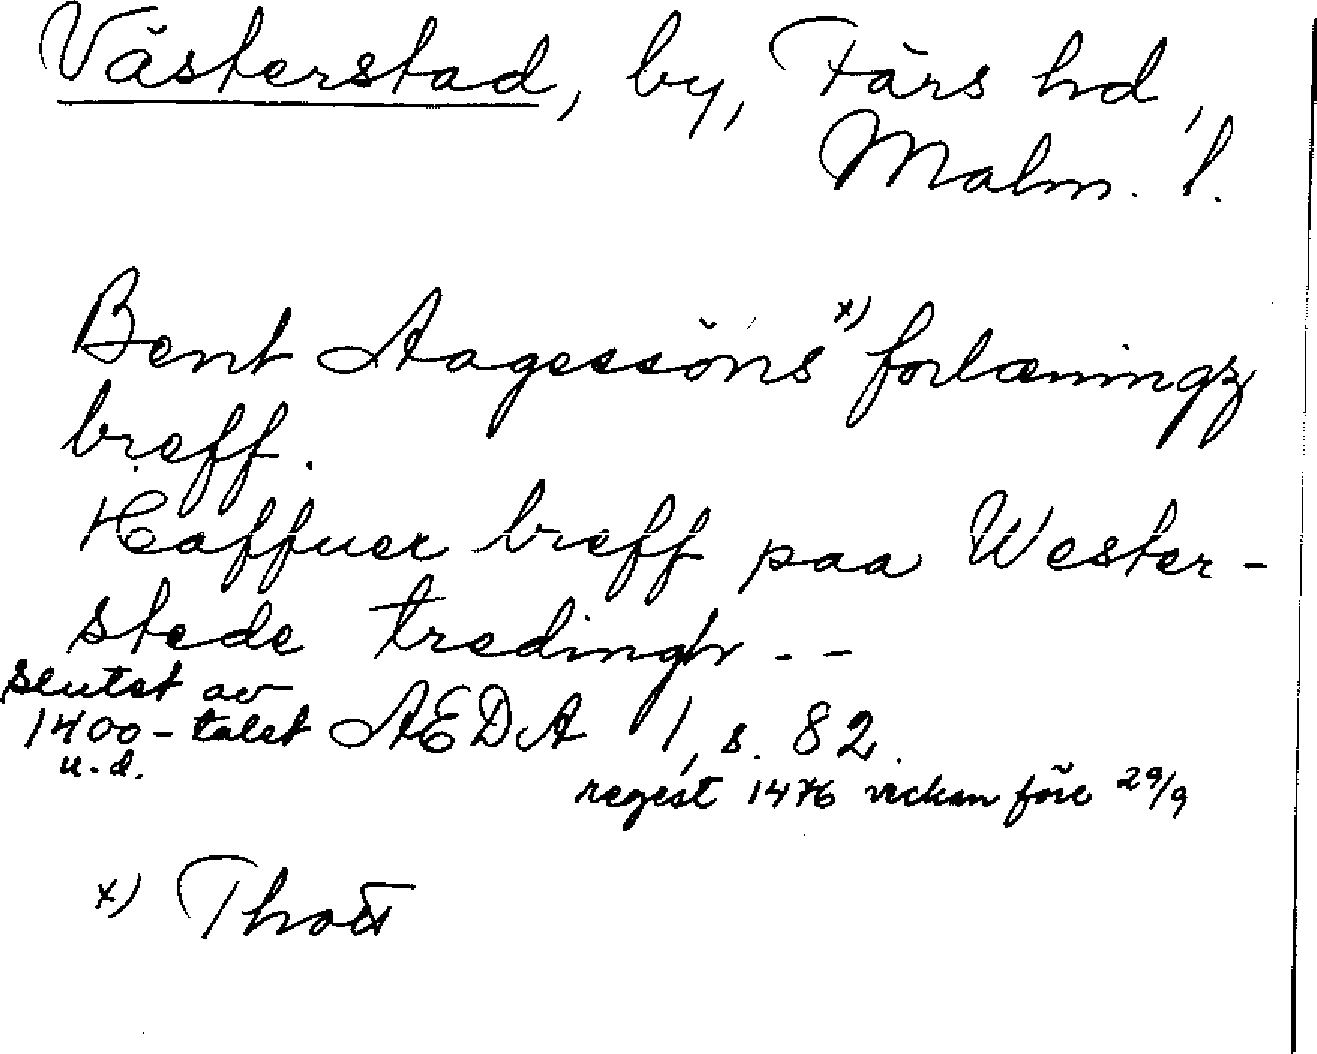 Västerstad, by, Färs hd,
Malm. l.
Bent Aagessöns x) forlæningz
breff.
Haffuer breff paa Wester-
stede tredingh --
slutet av
1400-talet AEDA 1, s. 82.
u.d.
regest 1476 veckan före 29/9
x) Thott